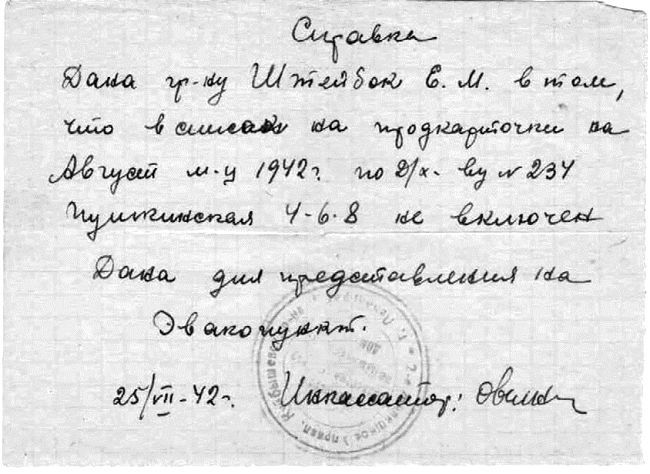 Справка
Дана гр-ну Штейбок Е. М. в том,
что в список на продкарточки на
Август м-ц 1942г. по д/х-ву № 234
Пушкинская 4-6-8 не включен
Дана для представления на
Эвакопункт.
25/VII-42г. Инкассатор: